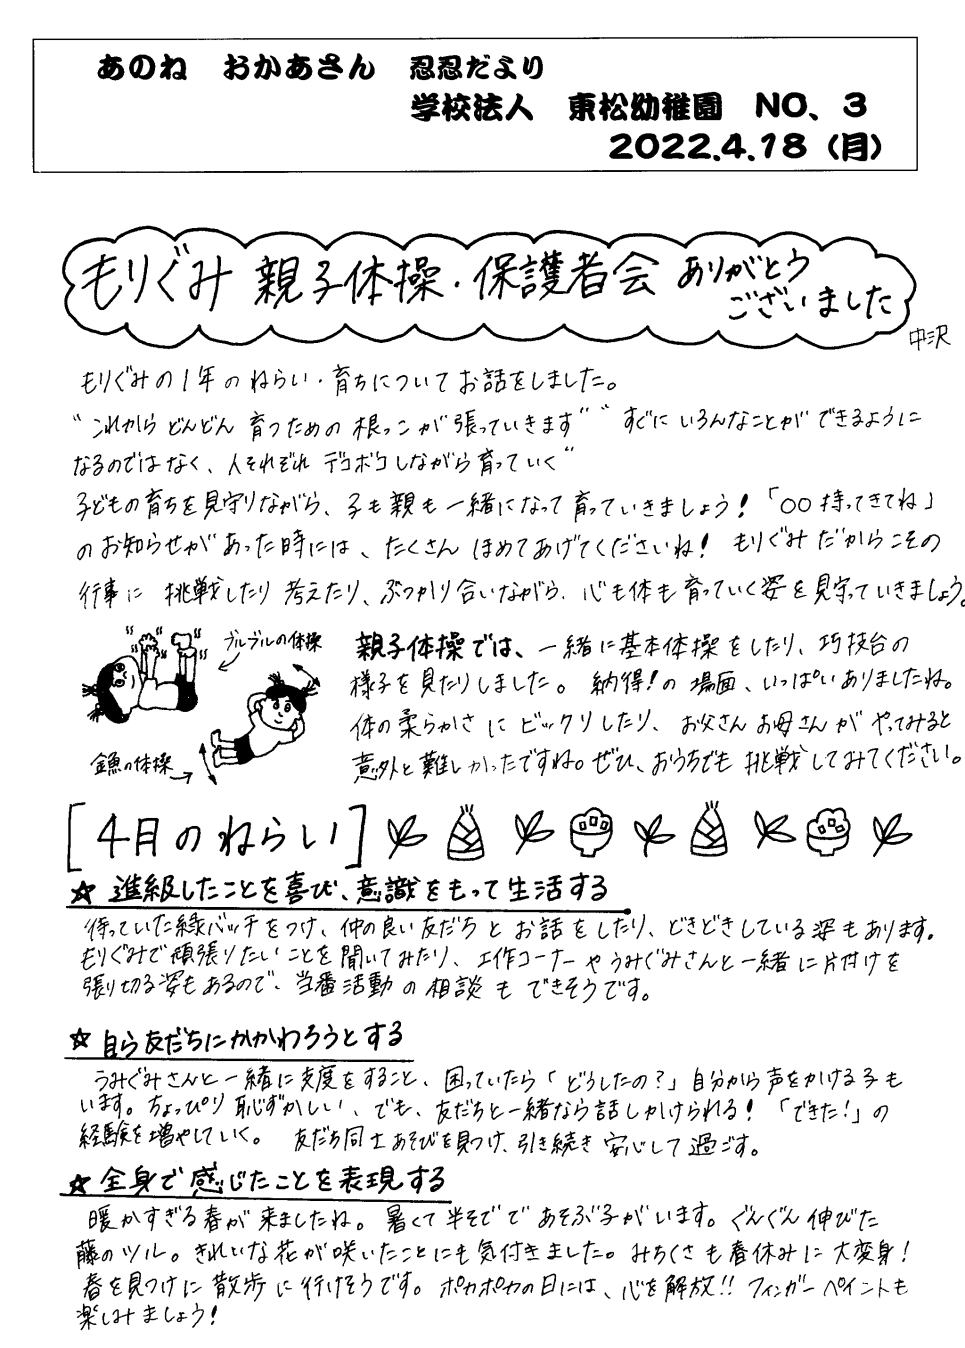 あのね　おかあさん　忍忍だより
学校法人　東松幼稚園　NO、3
2022.4.18（月）
もりぐみ 親子体操・保護者会 ありがとう
ございました
中沢
もりぐみの1年のねらい・育ちについてお話をしました。
〝これから どんどん 育つための 根っこが 張っていきます〟〝すぐに いろんなことが できるように
なるのではなく、人それぞれ デコボコしながら育っていく〟
子どもの育ちを見守りながら、子も親も一緒になって育っていきましょう！「○○持ってきてね」
のお知らせがあった時には、たくさん ほめてあげてくださいね！ もりぐみだからこその
行事に 挑戦したり 考えたり、ぶつかり合いながら、心も体も育っていく姿を見守っていきましょう。
ブルブルの体操
金魚の体操
親子体操では、一緒に基本体操をしたり、巧技台の
様子を見たりしました。納得！の場面、いっぱいありましたね。
体の柔らかさに ビックリしたり、お父さんお母さんが やってみると
意外と難しかったですね。ぜひ、おうちでも 挑戦してみてください。
[4月のねらい]
☆ 進級したことを喜び、意識をもって生活する
待っていた緑バッチをつけ、仲の良い友だちとお話をしたり、どきどきしている姿もあります。
もりぐみで頑張りたいことを聞いてみたり、工作コーナーやうみぐみさんと一緒に片付けを
張り切る姿もあるので、当番活動の相談もできそうです。
☆ 自ら友だちにかかわろうとする
うみぐみさんと一緒に支度をすること、困っていたら「どうしたの？」自分から声をかける子も
います。ちょっぴり恥ずかしい、でも、友だちと一緒なら話しかけられる！「できた！」の
経験を増やしていく。 友だち同士あそびを見つけ、引き続き 安心して過ごす。
☆ 全身で感じたことを表現する
暖かすぎる春が来ましたね。暑くて半そででであそぶ子がいます。ぐんぐん伸びた
藤のツル。きれいな花が咲いたことにも気付きました。みちくさも春休みに大変身！
春を見つけに散歩に行けそうです。ポカポカの日には、心を解放!! フィンガーペイントも
楽しみましょう！